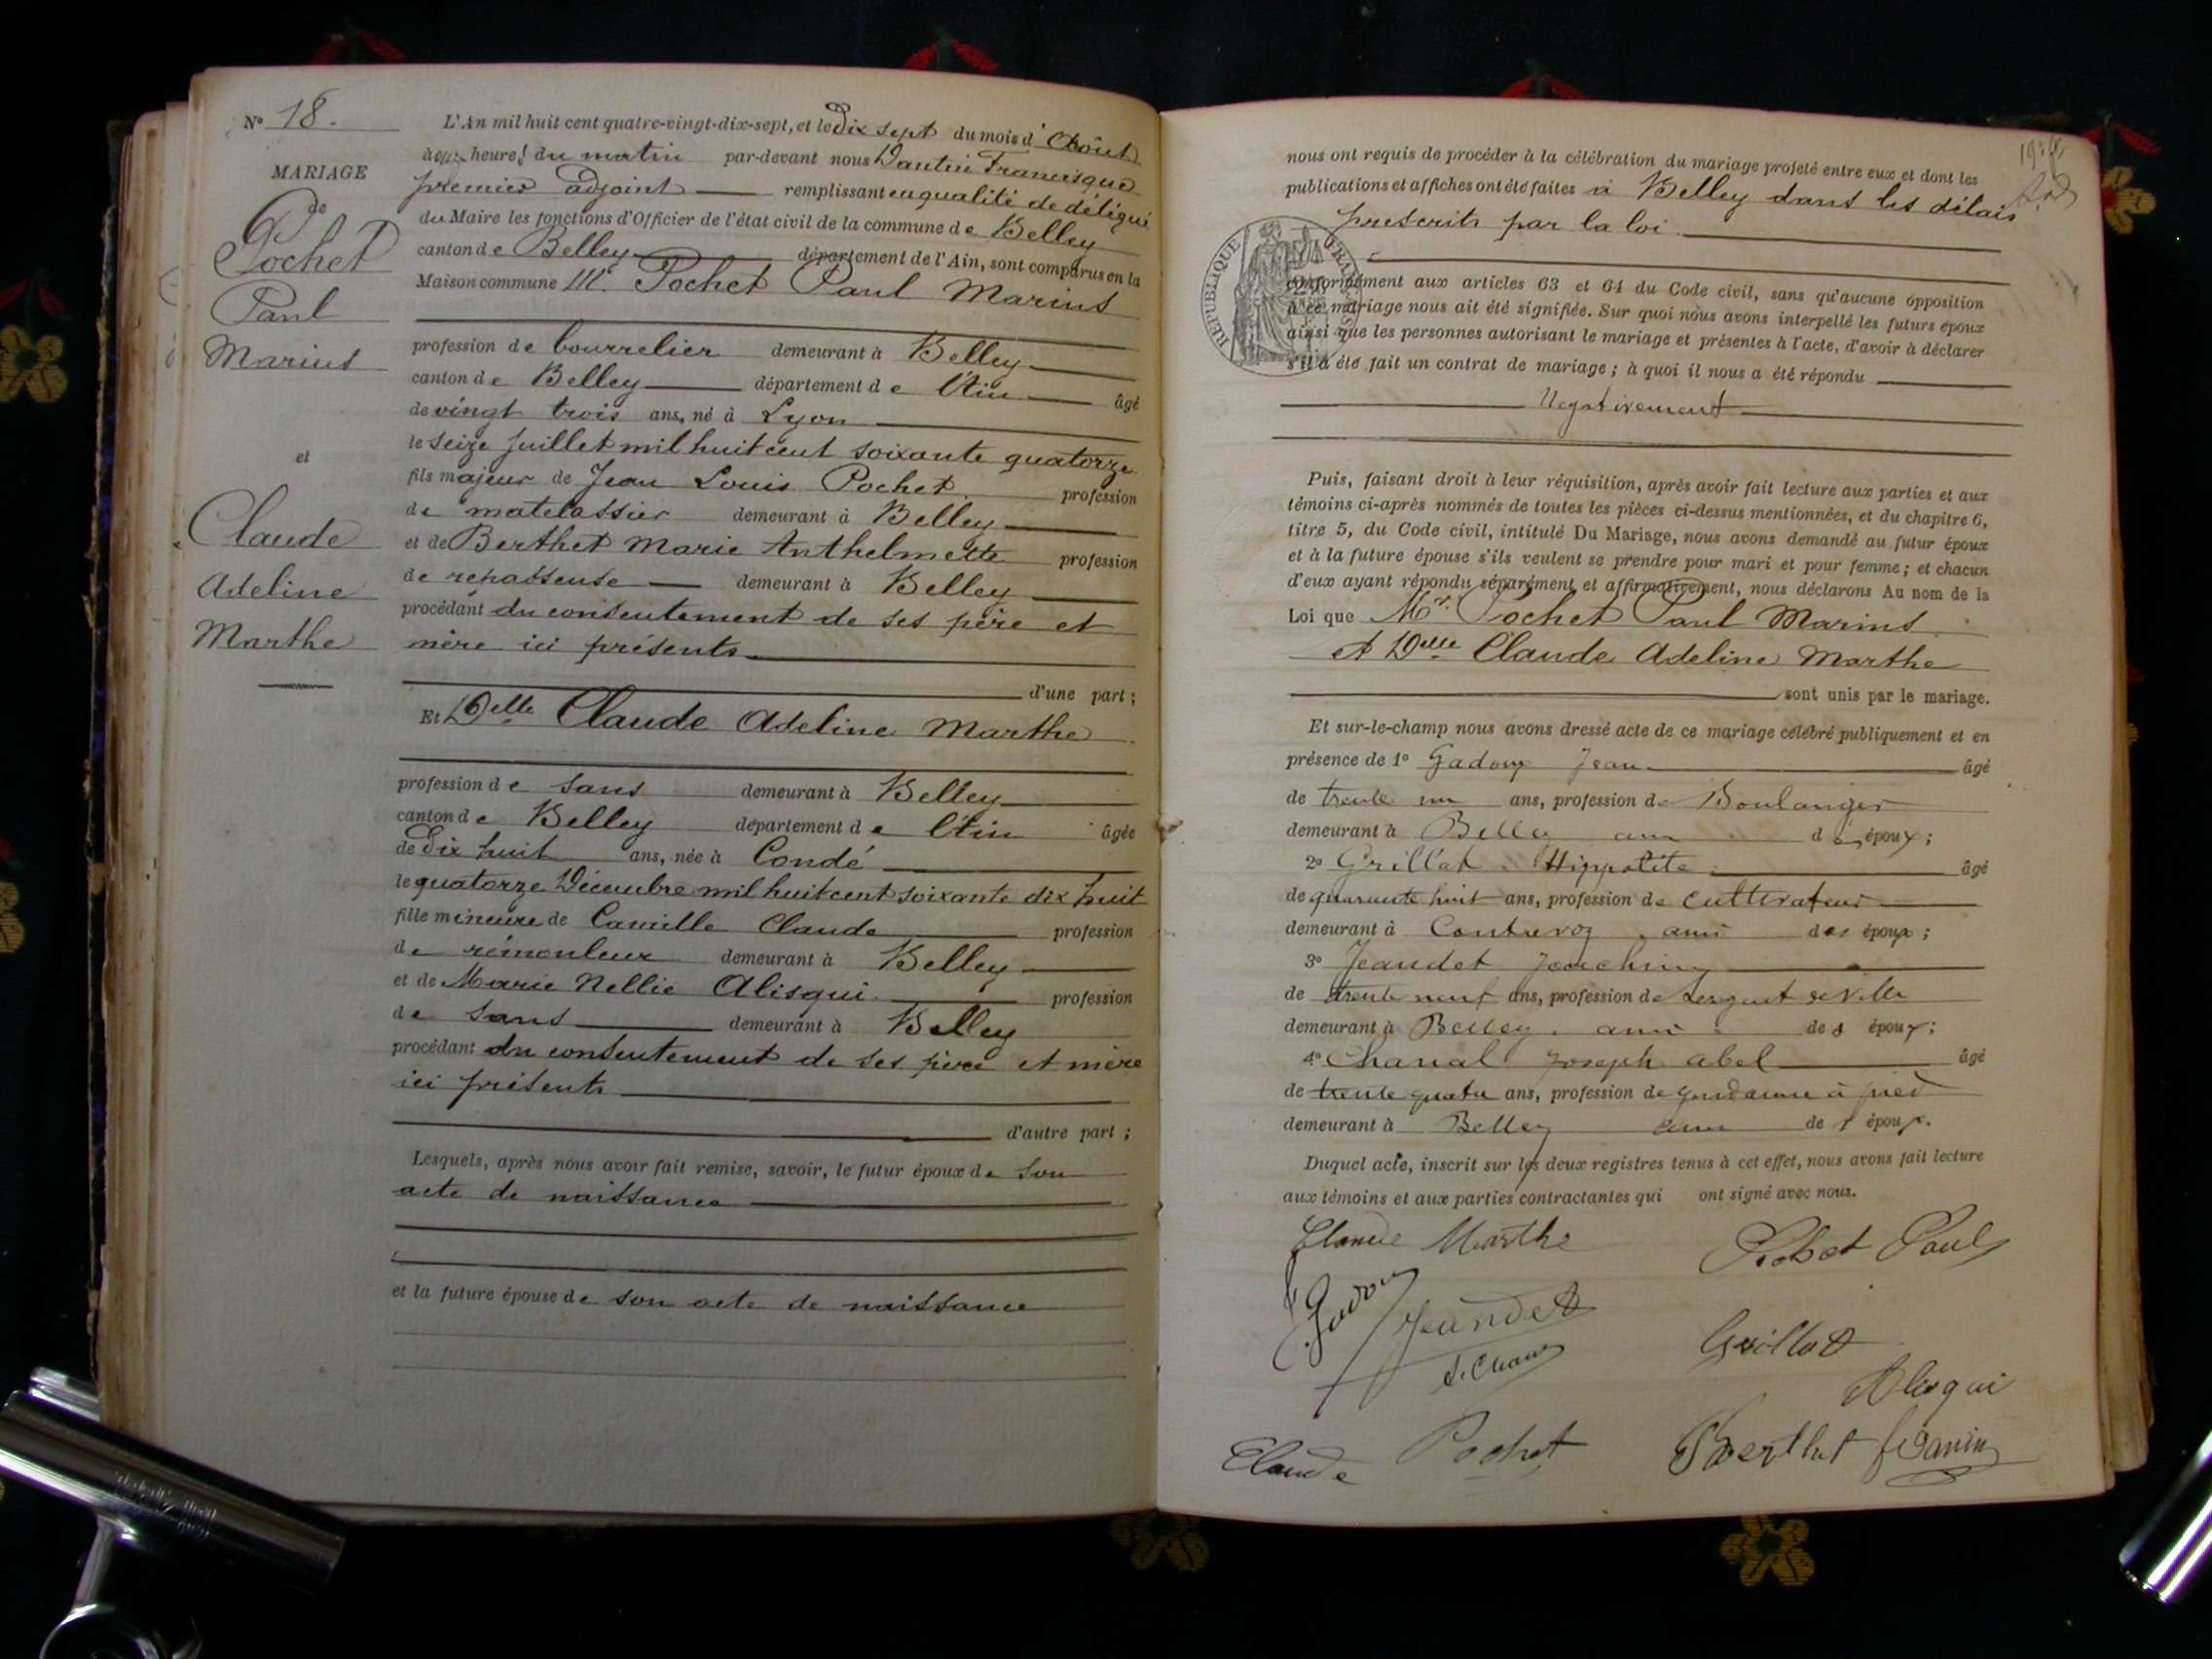 N° 18.
MARIAGE
de
Pochet
Paul
Marius
et
Claude
Adeline
Marthe
L'An mil huit cent quatre-vingt-dix-sept, et le Dix sept du mois d'Août
à heures du matin par-devant nous Dantin Francisque
premier adjoint remplissant en qualité de délégué
du Maire les fonctions d'Officier de l'état civil de la commune de Belley
canton de Belley département de l'Ain, sont comparus en la
Maison commune M. Pochet Paul Marius
profession de bourrelier demeurant à Belley
canton de Belley département de l'Ain âgé
de vingt trois ans, né à Lyon
le seize juillet mil huit cent soixante quatorze
fils majeur de Jean Louis Pochet profession
de matelassier demeurant à Belley
et de Berthet Marie Anthelmette profession
de repasseuse demeurant à Belley
procédant du consentement de ses père et
mère ici présents
d'une part ;
Et Delle Claude Adeline Marthe
profession de sans demeurant à Belley
canton de Belley département de l'Ain âgée
de Dix huit ans, née à Condé
le quatorze Décembre mil huit cent soixante dix huit
fille mineure de Camille Claude profession
de rémouleur demeurant à Belley
et de Marie Nellie Alisqui profession
de sans demeurant à Belley
procédant du consentement de ses père et mère
ici présents
d'autre part ;
Lesquels, après nous avoir fait remise, savoir, le futur époux de son
acte de naissance
et la future épouse de son acte de naissance
nous ont requis de procéder à la célébration du mariage projeté entre eux et dont les
publications et affiches ont été faites à Belley dans les délais
prescrits par la loi
RÉPUBLIQUE FRANÇAISE
conformément aux articles 63 et 64 du Code civil, sans qu'aucune opposition
à ce mariage nous ait été signifiée. Sur quoi nous avons interpellé les futurs époux
ainsi que les personnes autorisant le mariage et présentes à l'acte, d'avoir à déclarer
s'il a été fait un contrat de mariage ; à quoi il nous a été répondu
Négativement
Puis, faisant droit à leur réquisition, après avoir fait lecture aux parties et aux
témoins ci-après nommés de toutes les pièces ci-dessus mentionnées, et du chapitre 6,
titre 5, du Code civil, intitulé Du Mariage, nous avons demandé au futur époux
et à la future épouse s'ils veulent se prendre pour mari et pour femme ; et chacun
d'eux ayant répondu séparément et affirmativement, nous déclarons Au nom de la
Loi que Mr. Pochet Paul Marius
et Delle Claude Adeline Marthe
sont unis par le mariage.
Et sur-le-champ nous avons dressé acte de ce mariage célébré publiquement et en
présence de 1° Gadoux Jean âgé
de trente un ans, profession de Boulanger
demeurant à Belley ami des époux ;
2° Grillat Hippolite âgé
de quarante huit ans, profession de cultivateur
demeurant à Contrevoz ami des époux ;
3° Jeandet Joachim
de trente neuf ans, profession de Sergent de ville
demeurant à Belley. ami des époux ;
4° Chanal Joseph Abel âgé
de trente quatre ans, profession de gendarme à pied
demeurant à Belley ami des époux.
Duquel acte, inscrit sur les deux registres tenus à cet effet, nous avons fait lecture
aux témoins et aux parties contractantes qui ont signé avec nous.
Claude Marthe Pochet Paul
J. Gadoux
Jeandet Grillat
Alisqui
Claude Pochet Berthet